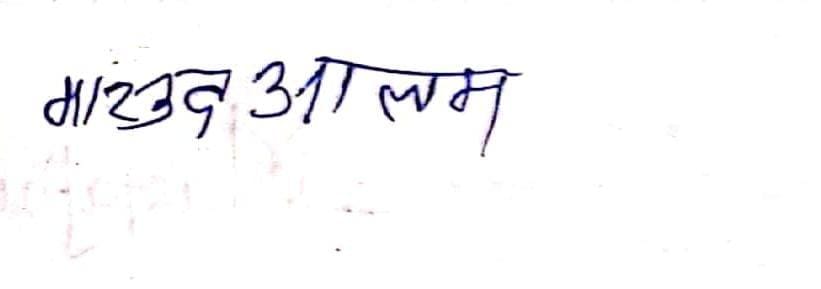 मारुद आलम